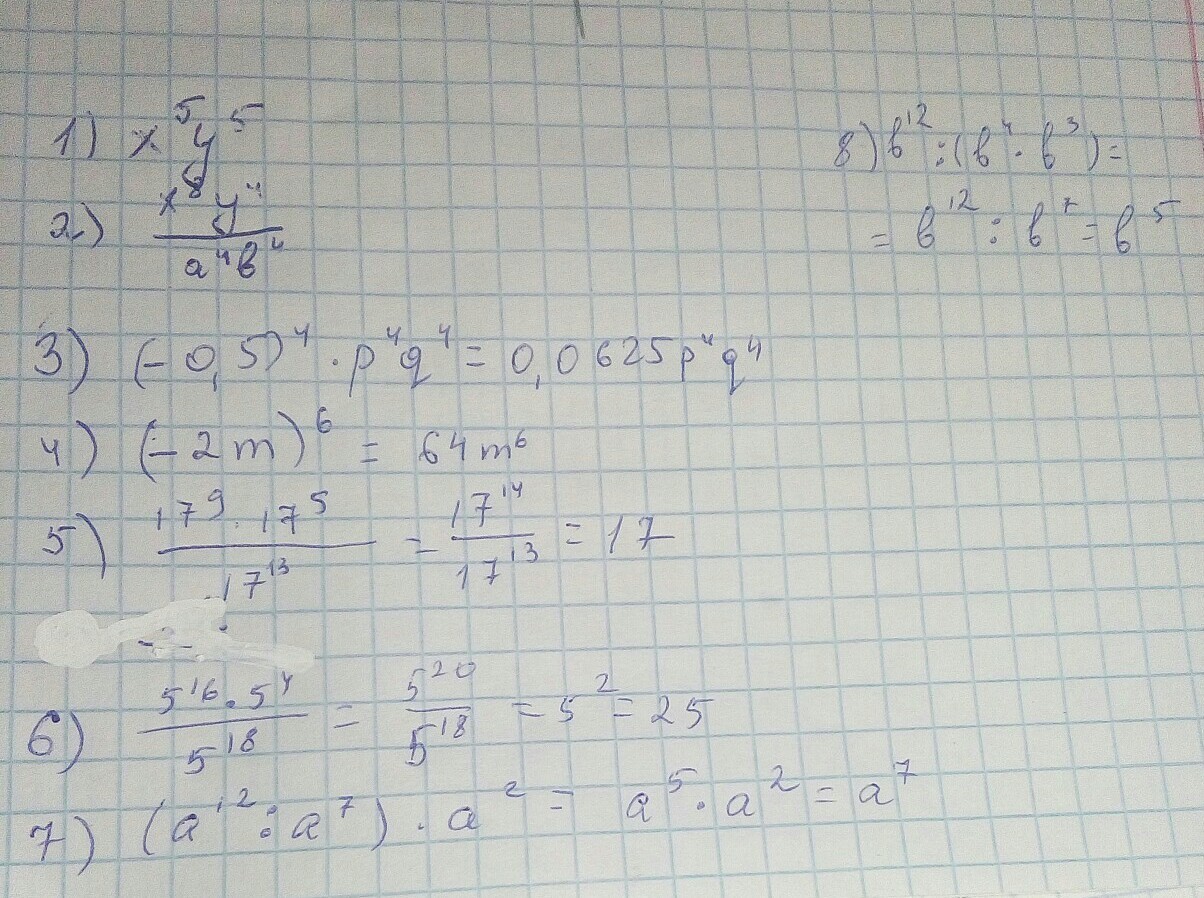 1) x⁵y⁵
2) x⁸y⁴ / a⁴b⁴
3) (-0,5)⁴ · p⁴q⁴ = 0,0625p⁴q⁴
4) (-2m)⁶ = 64m⁶
5) 17⁹ · 17⁵ / 17¹³ = 17¹⁴ / 17¹³ = 17
6) 5¹⁶ · 5⁴ / 5¹⁸ = 5²⁰ / 5¹⁸ = 5² = 25
7) (a¹² : a⁷) · a² = a⁵ · a² = a⁷
8) b¹² : (b⁴ · b³) =
= b¹² : b⁷ = b⁵